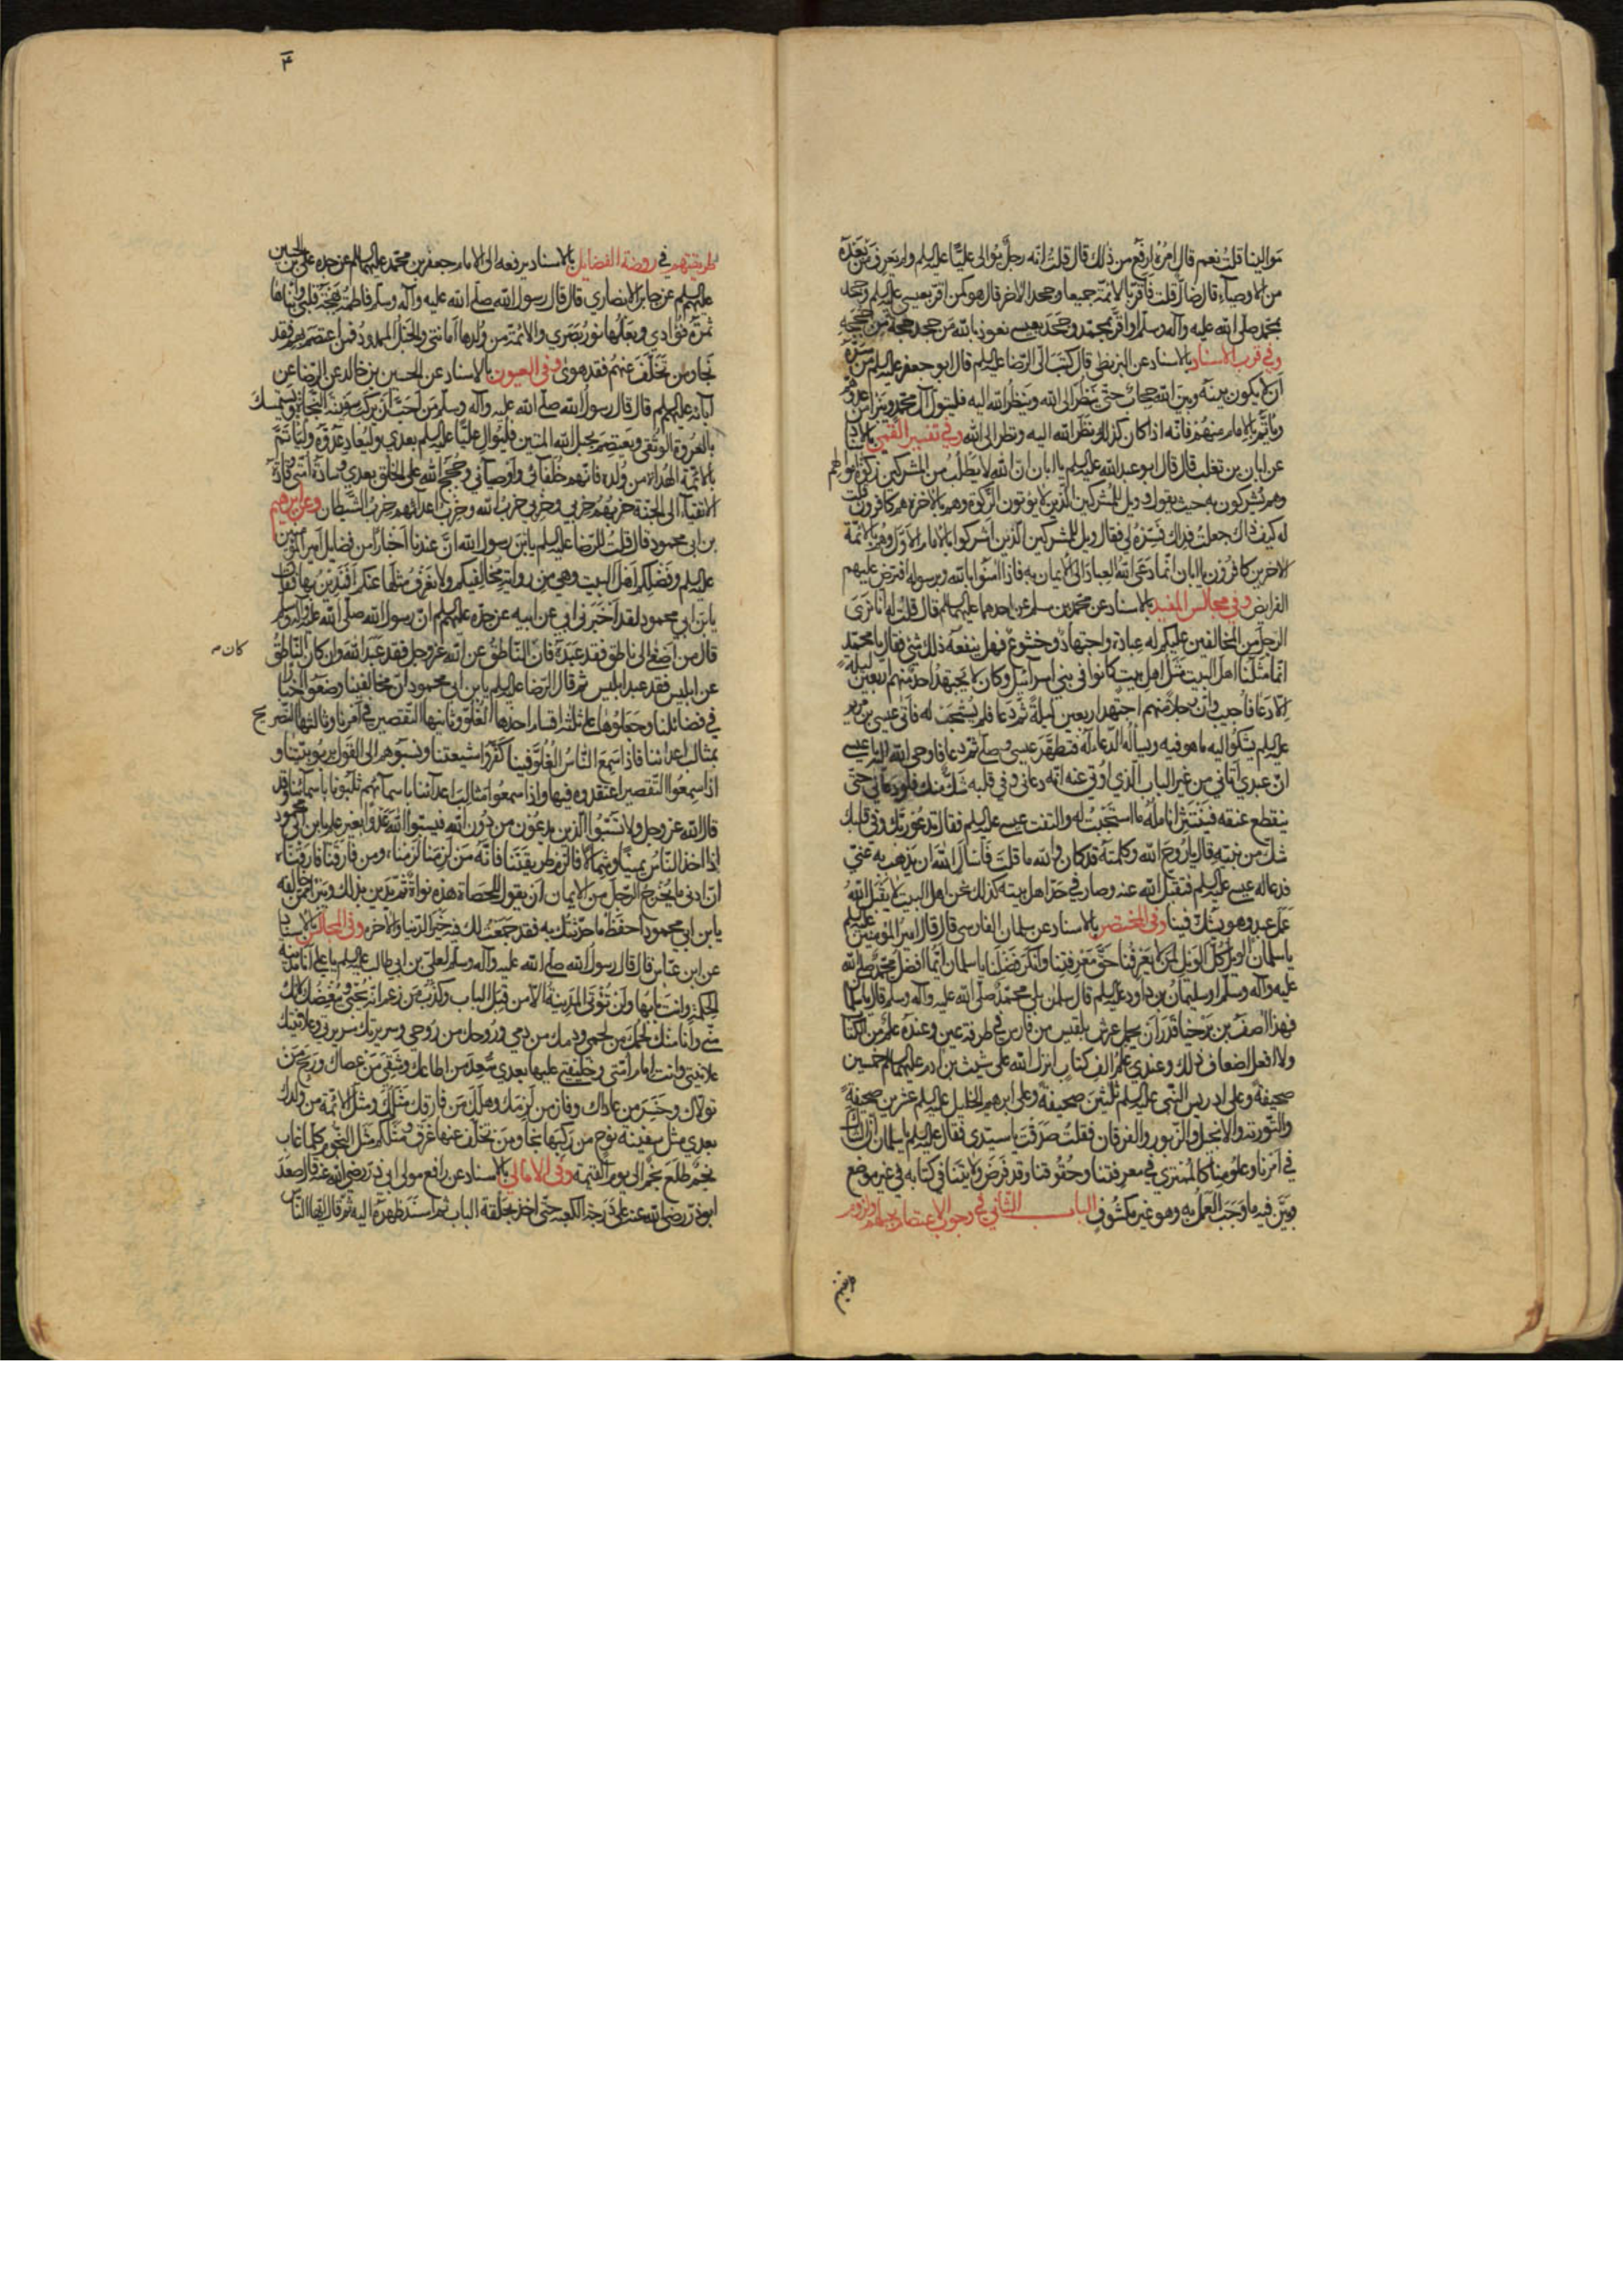 موالينا قلتُ نعم قال امرُهُ ارفع من ذلك قال قلتُ انّه رجلٌ يُوالى عليًّا عليه السلم ولم يعرف مَن بَعْدَهُ
من الاوصياء قال ضالّ قلت فاقرّ بالائمّة جميعا وجحد الاخر قال هو كمن اقرّ بعيسى عليه السلم وجحد
بمحمّد صلى الله عليه وآله وسلم او اقرّ بمحمّد وجَحَدَ بعيسى نعوذ بالله مَن جحد حجّة من حُججه
وفي قرب الاسناد بالاسناد عن البزنطي قال كتبَ الىّ الرّضا عليه السلم قال ابو جعفر عليه السلم مَن سَرَّه
اَن لا يكون بينَهُ وبينَ الله حِجابٌ حتّى يَنظُرَ الى الله ويَنظُرَ الله اليه فليتولّ آل محمّد ويتبرّأ من عدوّهم
ويأتمّ بالامام منهُمْ فانّه اذا كان كذلك نَظَرَ الله اليه ونظر الى الله وفي تفسير القمي بالاسناد
عن ابان بن تغلب قال قال ابو عبد الله عليه السلم يا ابان انّ الله لا يَطلُبُ من المشركين زكوة اموالهم
وهم يُشركون به حيث يقول وويل للمُشركين الّذين لا يؤتون الزّكوة وهم بالاخرة هم كافرون قلت
له كيف ذاك جعلتُ فِداك فَسِّرْهُ لي فقال ويل للمشركين الّذين اشركوا بالامام الاوّل وهم بالائمّة
الاخرين كافرُون يا ابان انّما دَعَى اللهُ العِبادَ الى الايمان به فاذا آمنوا بالله وبرسوله افترض عليهم
الفرايض وفي مجالس المفيد بالاسناد عن محمّد بن مسلم عن احدهما عليهما السلم قال قلتُ له انّا نَرَى
الرجلَ من المخالفين عليكم له عبادة واجتهادٌ وخشوع فهل ينفعه ذلك شئ فقال يا محمّد
انّما مَثَلُنا اهلَ البيت مَثَلُ اهل بيت كانوا في بني اسرآئيل وكان لا يجتهدُ احدٌ منهم اربعين ليلة
الّا دَعا فاُجيب وانّ رجلاً منهم اجتهد اربعين ليلةً ثمّ دَعا فلم يُستجَبْ له فاتى عيسى بن مريم
عليه السلم يَشكُوا اليه ما هو فيه ويسألُهُ الدّعاءَ له فتطهَّرَ عيسى وصلّى ثم دعا فاوحى الله اليه يا عيسى
انّ عبدي اتاني من غير الباب الّذي اُوتى عنه انّه دعاني وفي قلبه شَكّ منك فلو دعاني حتّى
ينقطع عنقه وتنتثر انامله ما استَجَبْتُ له والتفت عيسى عليه السلم فقال تدعُو ربّك وفي قلبك
شكّ من نبيّه قال يا رُوحَ الله وكلمتَه قد كان والله ما قلتَ فَاسْأَل الله ان يَذهَب به عنّي
فدعا له عيسى عليه السلم فتقبّل الله عنه وصار في حدّ اهل بيته كذلك نحن اهل البيت لا يقبل الله
عَمَل عبدٍ وهو يشكّ فينا وفي المختصر بالاسناد عن سلمان الفارسى قال قال امير المؤمنين عليه السلم
يا سلمان الويلُ كلّ الويل لمن لا يَعْرِفُنا حقّ مَعْرِفتِنا وانكَرَ فَضْلَنا يا سلمان ايّما افضل محمّد صلى الله
عليه وآله وسلم او سليمانُ بن داود عليه السلم قال سلمان بلى محمّد صلى الله عليه وآله وسلم قال يا سلمان
فهذا آصفُ بن بَرْخيا قدَرَ اَن يحمل عرش بلقيس من فارس في طرفة عين وعندَهُ علمٌ من الكتاب
ولا افعل اضعاف ذلك وعندي عِلمُ الف كتابٍ انزل الله على شيث بن ادم عليهما السلم خمسين
صحيفةً وعلى ادريس النّبي عليه السلم ثلثينَ صحيفةً وعلى ابرهيم الخليل عليه السلم عشرين صحيفةً
والتّورية والانجيل والزّبور والفرقان فقلتُ صدَقتَ يا سيّدي فقال عليه السلم يا سلمان انّ الشاكّ
في امرنا وعلومنا كالمُمتري في معرفتنا وحقُوقنا وقد فَرَضَ ولايتَنا في كتابه في غير موضع
وبَيَّن فيه ما وَجَبَ العَمَلُ به وهو غير مكشُوفٍ الباب الثاني في وجوب الاعتصام بهم ولزوم
طريقتهم
طريقتهم في روضة الفضايل بالاسناد يرفعه الى الامام جعفر بن محمّد عليهما السلم عن جده على بن الحسين
عليهم السلم عن جابر الانصاري قال قال رسول الله صلى الله عليه وآله وسلم فاطمةُ بَهْجَةُ قلبي وابناها
ثمرَةُ فُؤادي وبَعْلُها نورُ بَصَري والائمّةُ من وُلدِها اُمَنائي والحَبْلُ الممدودُ فمن اعتصم بهم فقد
نجا ومن تَخَلّفَ عَنهُم فقد هوىٰ وفي العيون بالاسناد عن الحسين بن خالد عن الرّضا عن
آبائه عليهم السلم قال قال رسول الله صلى الله عليه وآله وسلم من احَبَّ اَن يركبَ سفينةَ النّجاة ويستمسك
بالعُروة الوثقى ويَعتصِمَ بحبل الله المتين فليُوالِ عليّا عليه السلم بعدي وليُعادِ عدُوّهُ وليأتَمَّ
بالائمّة الهُداة من وُلده فانّهم خُلفآئي واَوصيآئي وحُجج الله على الخلق بعدي وسادةُ امّتي وقادةُ
الاتقيآء الى الجنّة حزبُهُم حزبي وحزبي حزبُ الله وحزبُ اعدائهم حزبُ الشّيطان وعن ابرهيم
بن ابي محمود قال قلتُ للرّضا عليه السلم يا بنَ رسول الله انَّ عندَنا اَخبارًا من فضايل امير المؤمنين
عليه السلم وفَضلِكُم اهلَ البيت وهي مِن رواية مُخالِفيكم ولا نَعْرَفُ مثلَها عنكم اَفَنَدِينُ بها فقال
يا بنَ ابي محمود لقد اَخْبَرَني ابي عن ابيه عن جدّه عليهم السلم انّ رسول الله صلّى الله عليه وآله وسلم
قال من اَصغىٰ الى ناطقٍ فقد عَبَدَهُ فان النّاطقُ عن الله عزّ وجل فقد عَبَد الله وان كان النّاطقُ
كان
عن ابليس فقد عبد ابليس ثم قال الرّضا عليه السلم يا بن ابى محمود انّ مخالفينا وضعوا اخبارًا
في فضائلنا وجَعَلوُها على ثلثة اقسام احدها الغُلوّ وثانيها التّقصير في اَمْرنا وثالثها التّصريح
بمثالب اعدائنا فاذا سَمِعَ النّاسُ الغُلوَّ فينا كفَّرُوا شيعتنا ونَسَبُوهم الى القول برُبوبيّتنا و
اذا سمِعُوا التّقصير اعتقدوه فينا واذا سمعوا مثالبَ اعدآئنا باسمآئهم ثلَبُونا باسمآئنا وقد
قال الله عزّ وجل ولا تَسُبُّوا الّذين يدعُون من دُون الله فيسبّوا اللهَ عَدْوًا بغير علم يا بن ابي محمود
اذا اخذ النّاسُ يمينًا وشمالاً فالزَم طريقتَنا فانّهُ مَن لَزِمَنا لَزِمْناه ومن فارَقَنا فارقْناه
انّ ادنى ما يُخرِجُ الرّجلَ مِنَ الايمان اَن يقولَ للحَصاة هذه نواةٌ ثمّ يَدين بذلك ويتبرّأ ممّن خالفه
يا بن ابي محمود احفَظْ ما حدّثتُك به فقد جَمَعْتُ لك فيه خَيْرَ الدّنيا والآخرة وفي المجالس بالاسناد
عن ابن عبّاس قال قال رسول الله صلى الله عليه وآله وسلم لعليّ بن ابي طالب عليه السلم يا علي انا مدينة
الحكمة وانت بابُها ولَن تُؤتَى المَدينةُ الّا من قبَل الباب وكذَبَ مَن زعم انّه يُحبّني ويُبغِضُكَ لانّك
منّي واَنا منك لحمُك من لحمي ودمُك من دمي ورُوحُك من رُوحي وسريرتُك سريرتي وعلانيتُك
علانيتي وانت امام اُمّتي وخليفتي عليها بعدي سَعِدَ مَن اطاعك وشقِيَ مَن عصاك ورَبِحَ مَن
تولّاك وخَسِرَ من عاداك وفاز من لزِمَك وهلَكَ مَن فارقك مَثَلُكَ ومثلُ الائمّة من ولدك
بعدي مثل سفينة نوح من ركبَها نجا ومَن تخلّف عنها غرق ومثلكم مثل النّجوم كلّما غاب
نجمٌ طلَعَ نجمٌ الى يوم القيٰمة وفي الامالي بالاسناد عن رافع مولى ابي ذر رضى الله عنه قال صعَدَ
ابو ذر رضى الله عنه على دَرجة الكعبه حتّى اخذ بحلقة الباب ثم اسندَ ظهرَهُ اليه ثمّ قال ايّها النّاس